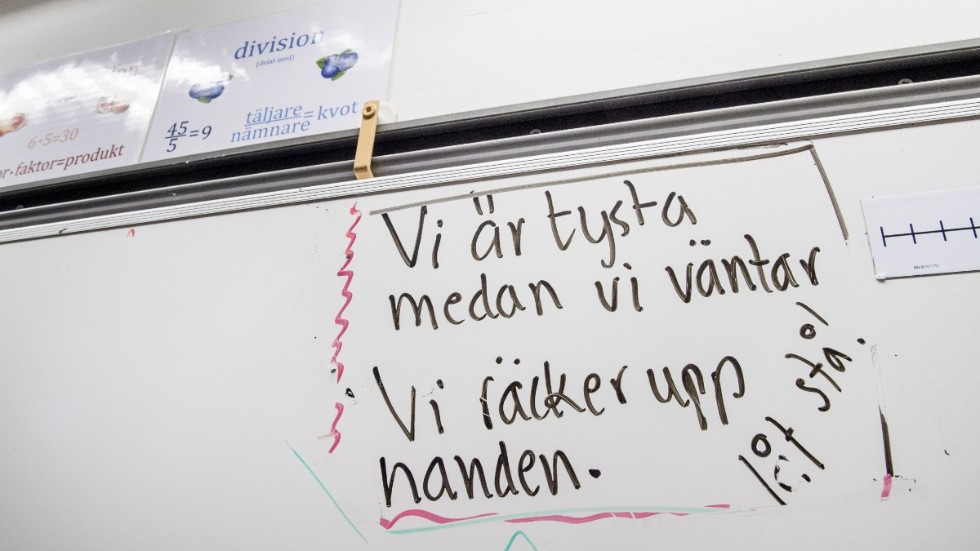 division
(delat med)
45/5=9
täljare/nämnare=kvot
6·5=30
faktor=produkt
Vi är tysta
medan vi väntar
Vi räcker upp
handen.
låt stå!